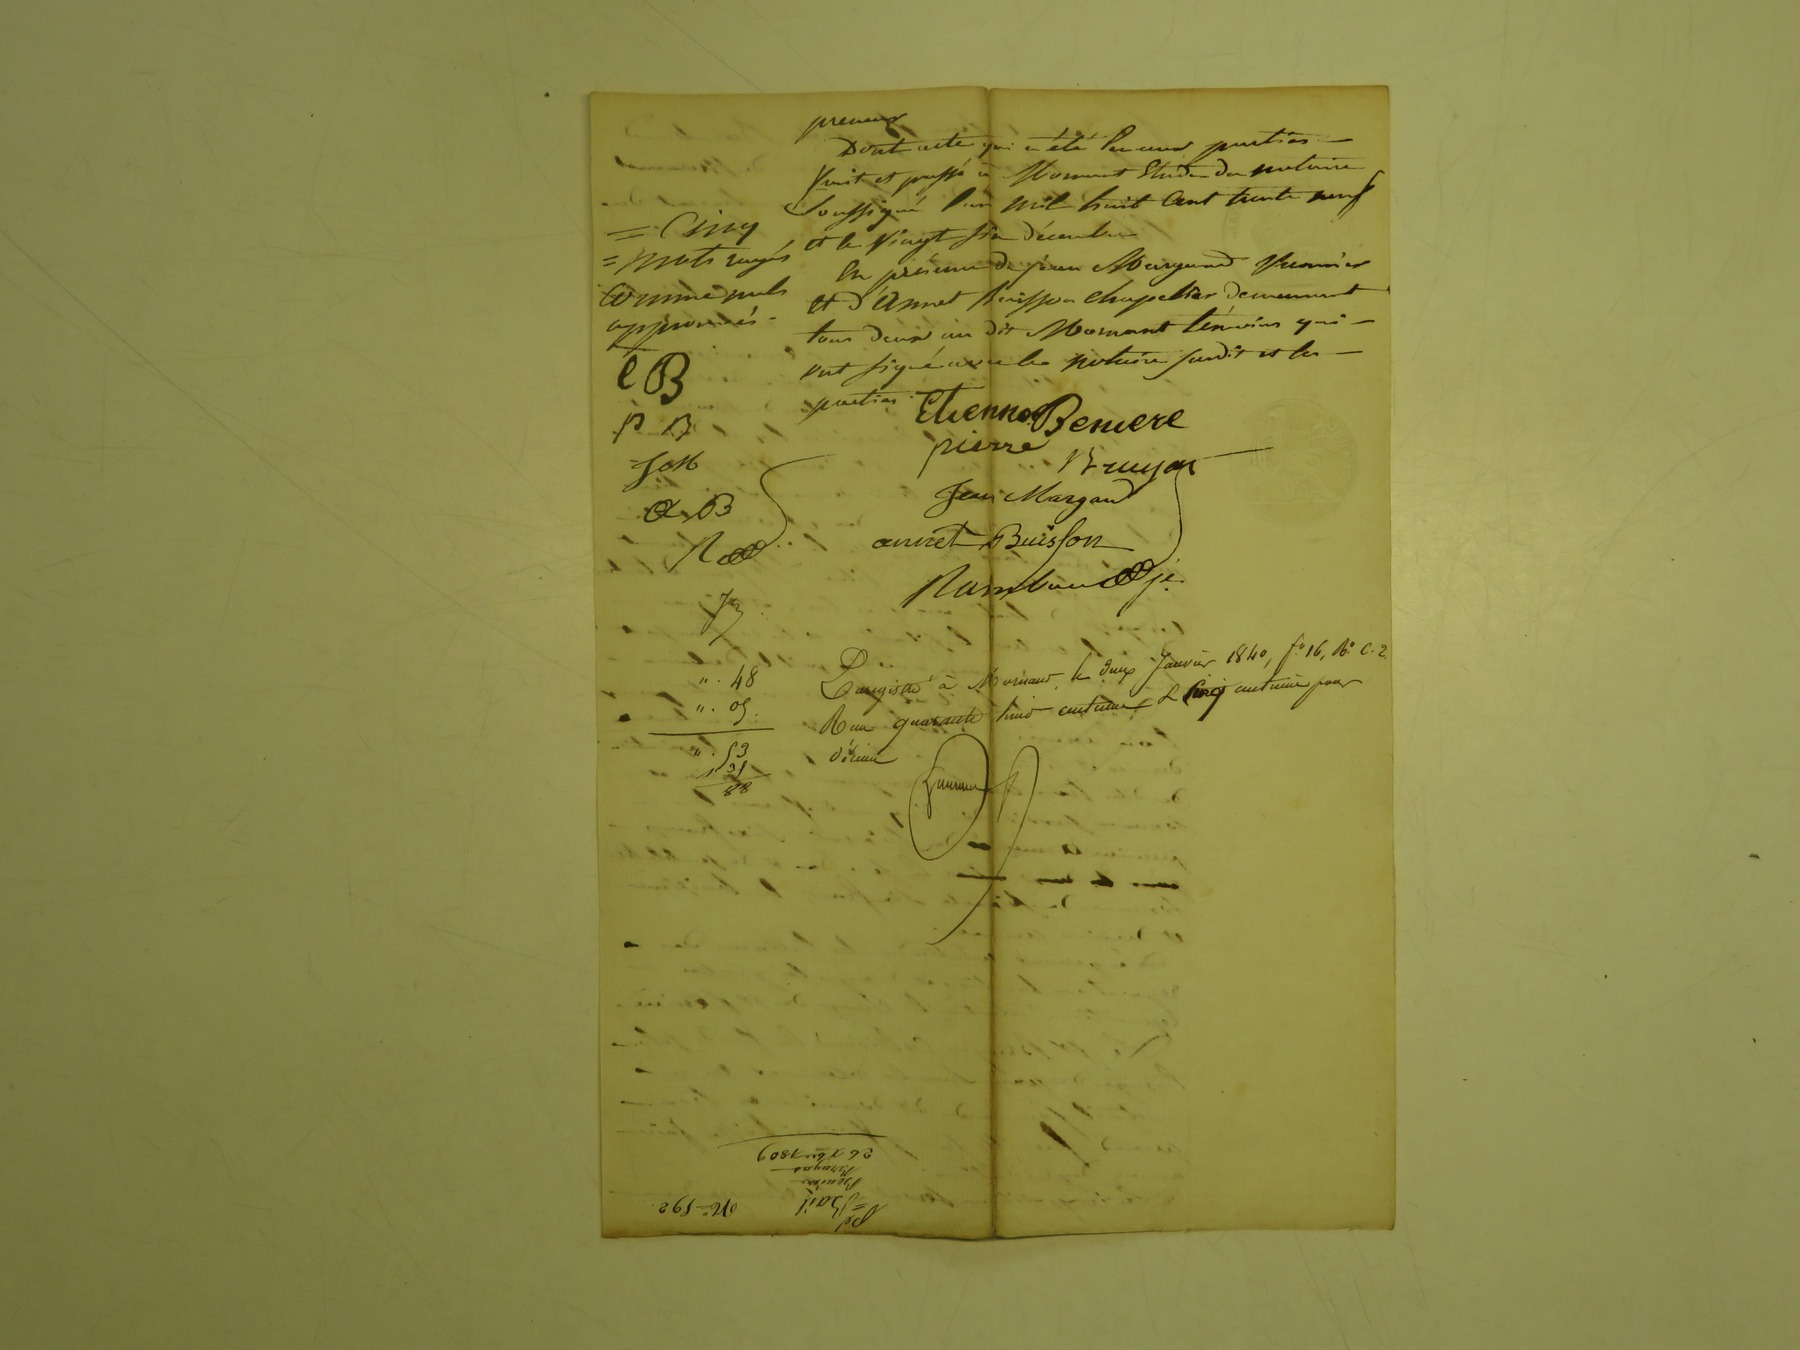 preneur
Dont acte qui a été lu aux parties
Fait et passé à Mornant Etude du notaire
soussigné l'an mil huit cent trente neuf
et le vingt six décembre
En présence de jean Margaud
et d'Annet Buisson chapelier demeurant
tous deux au dit Mornant témoins qui
ont signé avec le notaire susdit et les
parties
= Cinq
= mots rayés
comme nuls
approuvés
e B
P B
J M
a B
R
Etienne Beniere
pierre Bruyas
Jean Margaud
annet Buisson
Rambaud je
" . 48
" . 05
" . 53
1 31
88
Enregistré à Mornant, le deux Janvier 1840, f° 16, R° C. 2
Reçu quarante huit centimes & cinq centimes pour
décime
N° 592
Bail
Beniere
Bruyas
26 Xbre 1809